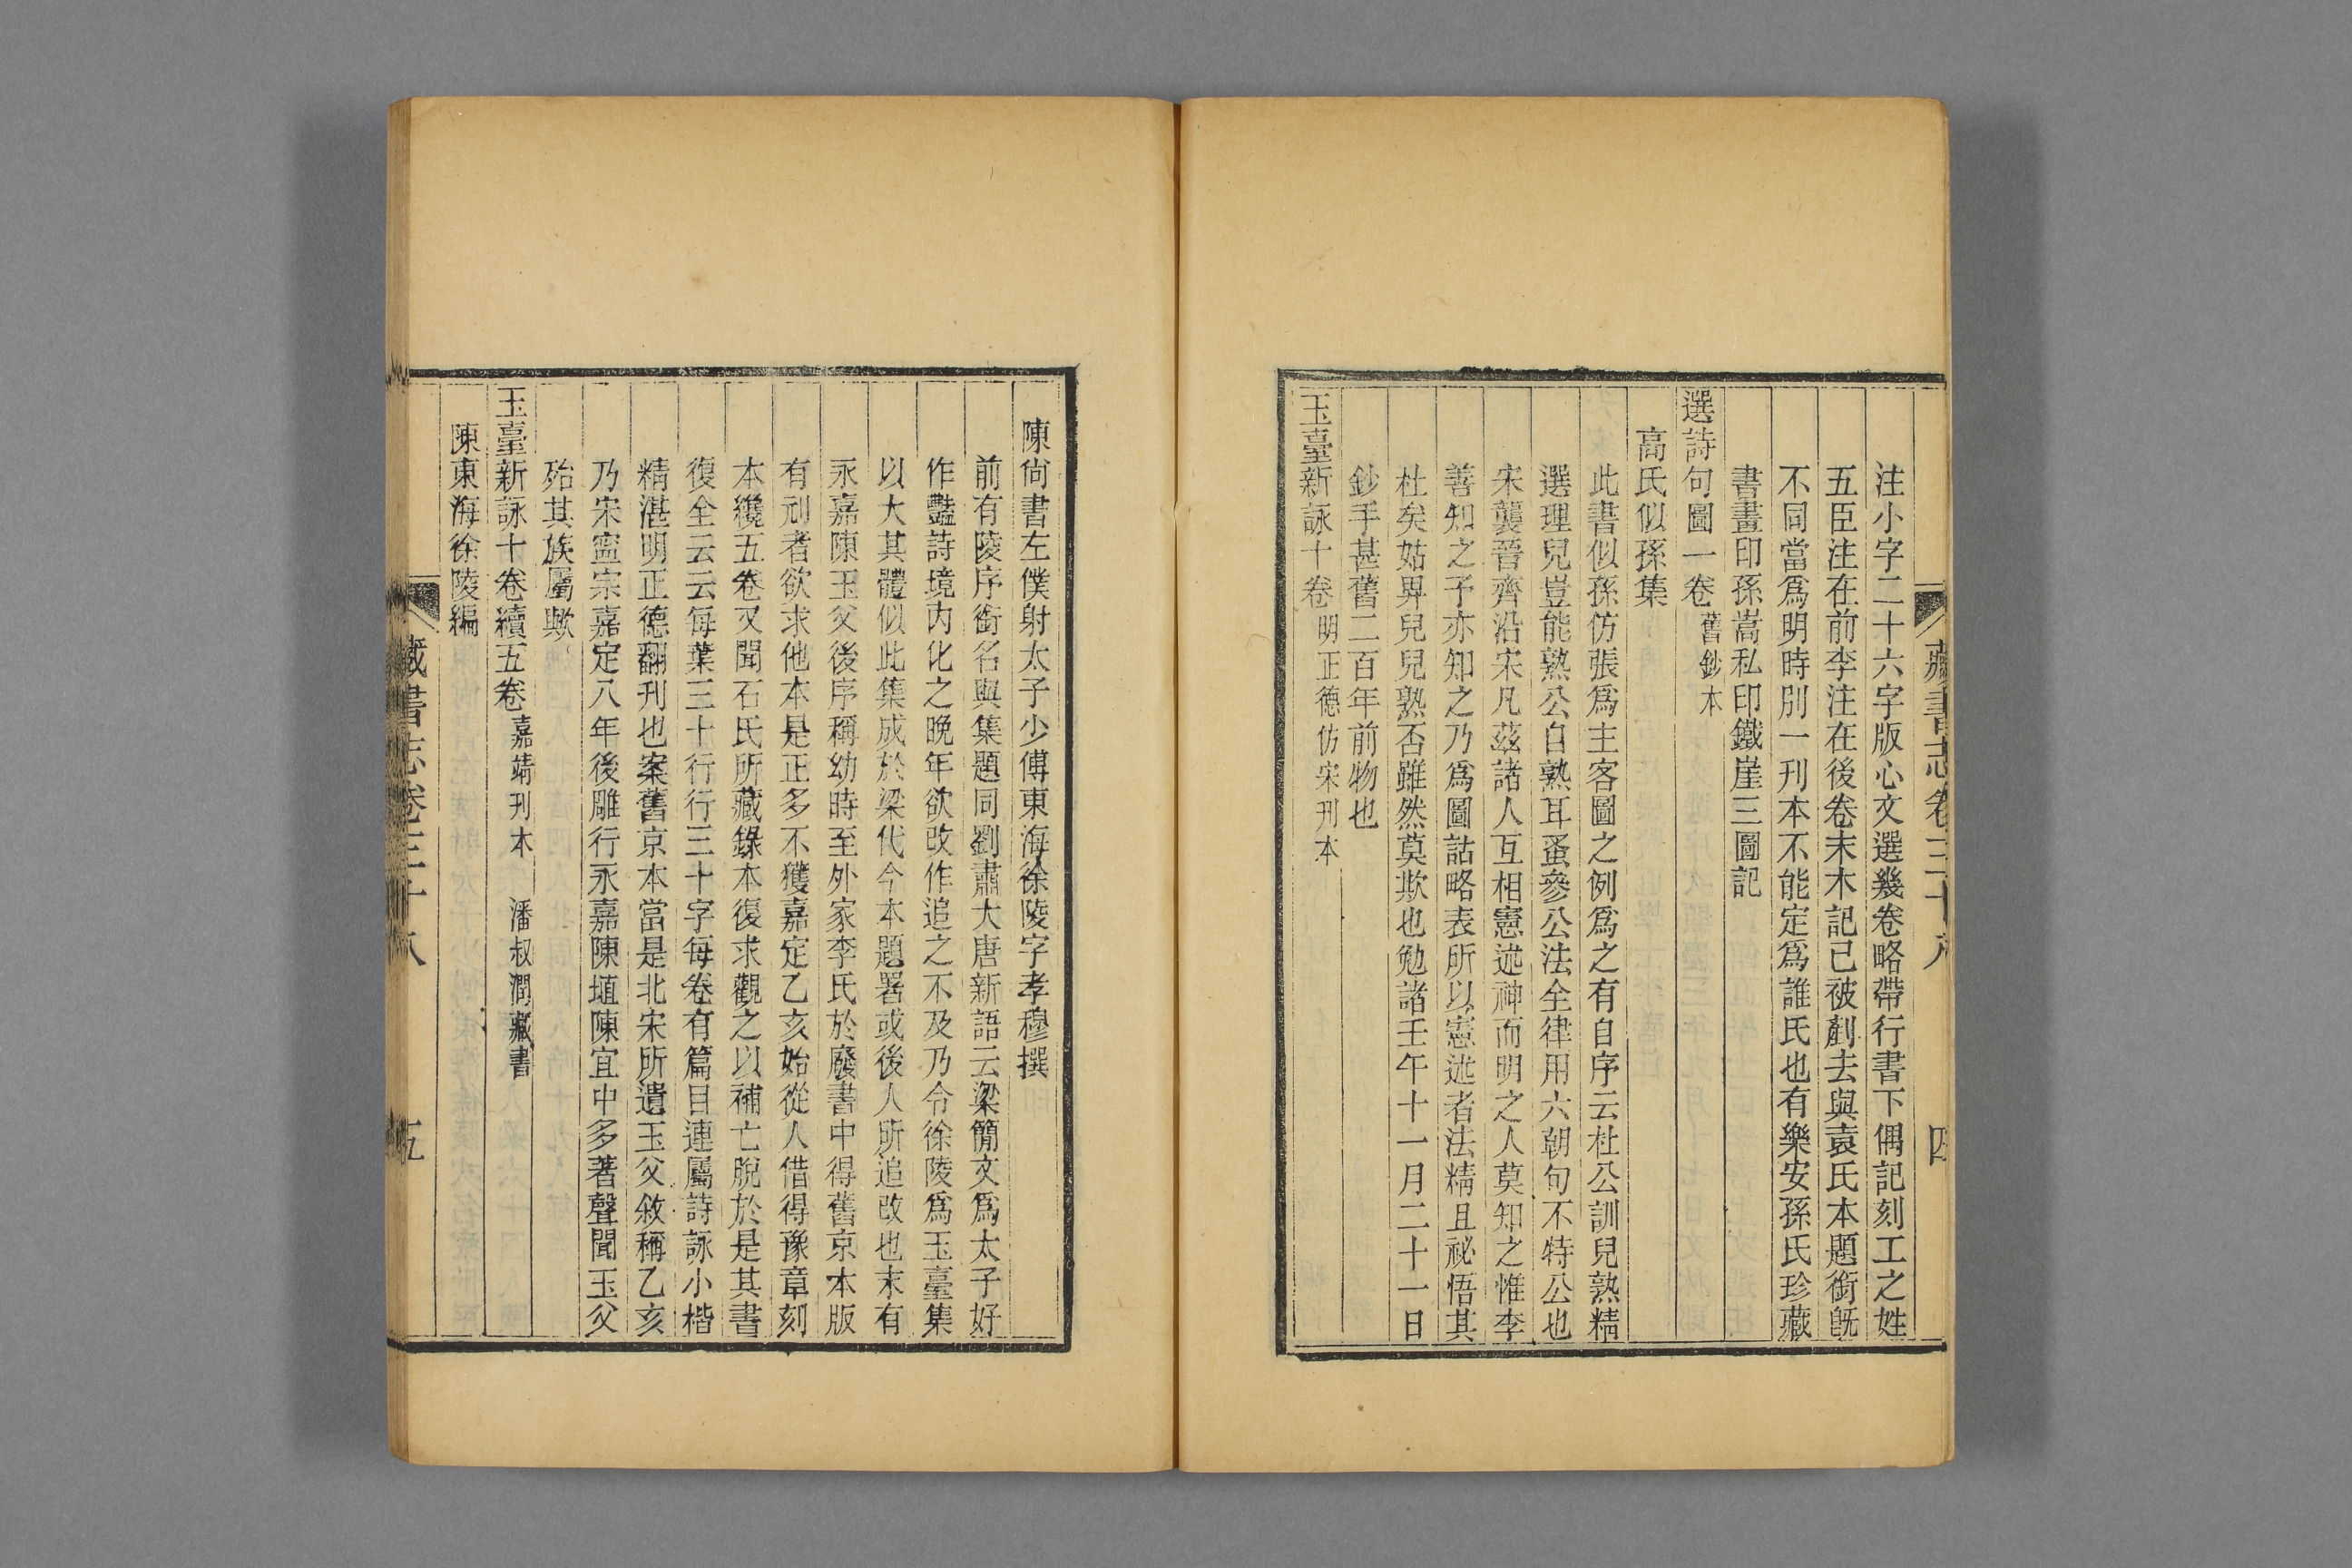 藏書志卷三十八
四
注小字二十六字版心文選幾卷略帶行書下偶記刻工之姓
五臣注在前李注在後卷末木記已被剷去與袁氏本題銜旣
不同當爲明時別一刊本不能定爲誰氏也有樂安孫氏珍藏
書畫印孫嵩私印鐵崖三圖記
選詩句圖一卷 舊鈔本
高氏似孫集
此書似孫仿張爲主客圖之例爲之有自序云杜公訓兒熟精
選理兒豈能熟公自熟耳蚤參公法全律用六朝句不特公也
宋襲晉齊沿宋凡茲諸人互相憲述神而明之人莫知之惟李
善知之予亦知之乃爲圖詁略表所以憲述者法精且祕悟其
杜矣姑畀兒兒熟否雖然莫欺也勉諸壬午十一月二十一日
鈔手甚舊二百年前物也
玉臺新詠十卷 明正德仿宋刊本
陳尙書左僕射太子少傅東海徐陵字孝穆撰
前有陵序銜名與集題同劉肅大唐新語云梁簡文爲太子好
作豔詩境內化之晚年欲改作追之不及乃令徐陵爲玉臺集
以大其體似此集成於梁代今本題署或後人所追改也末有
永嘉陳玉父後序稱幼時至外家李氏於廢書中得舊京本版
有刓者欲求他本是正多不獲嘉定乙亥始從人借得豫章刻
本纔五卷又聞石氏所藏錄本復求觀之以補亡脫於是其書
復全云云每葉三十行行三十字每卷有篇目連屬詩詠小楷
精湛明正德翻刊也案舊京本當是北宋所遺玉父敘稱乙亥
乃宋寍宗嘉定八年後雕行永嘉陳埴陳宜中多著聲聞玉父
殆其族屬歟
玉臺新詠十卷續五卷 嘉靖刊本 潘叔潤藏書
陳東海徐陵編
藏書志卷三十八
五